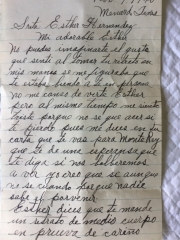 Menard, Texas
Srita Esther Hernandez
Mi adorable Esther
No puedes imaginarte el gusto
que senti al tomar tu retrato en
mis manos se me figuraba que
te estaba biendo a ti en persona
no me canso de verte Esther,
pero al mismo tiempo me siento
triste porque no se que aser si
te pierdo pues me dices en tu
carta que te vas para Monterrey
que te de una esperansa que
te diga si nos bolberemos
a ver yo creo que si aunque
no se cuando porque nadie
sabe el porvenir
Esther dices que te mande
un retrato de medio cuerpo
en prueva de cariño